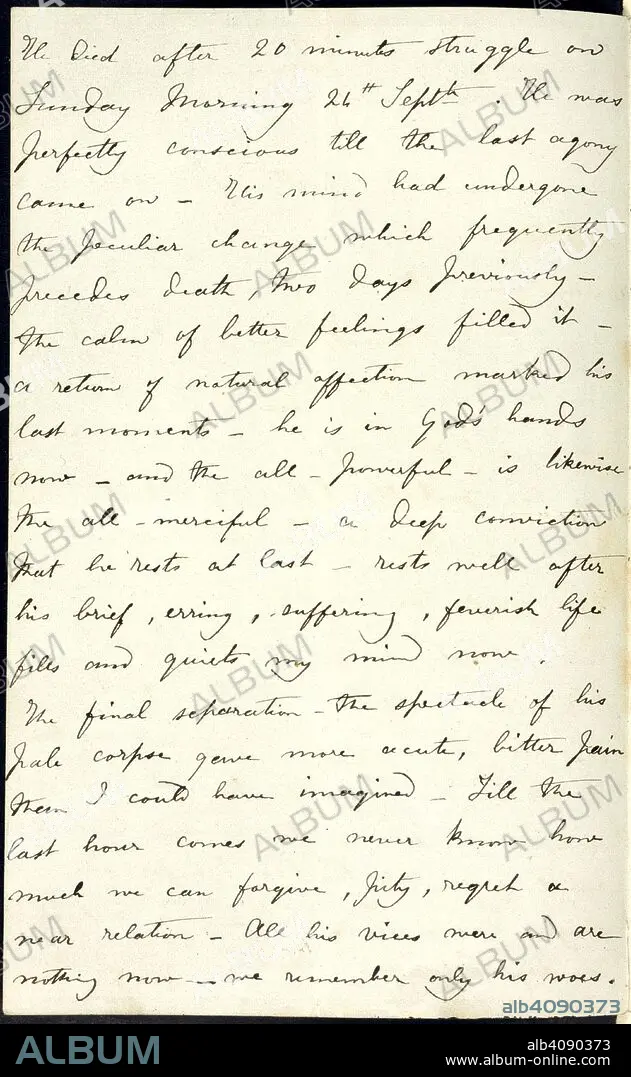 He died after 20 minutes struggle on
Sunday Morning 24th Septth. He was
perfectly conscious till the last agony
came on – His mind had undergone
the peculiar change which frequently
precedes death, two days previously –
the calm of better feelings filled it –
a return of natural affection marked his
last moments – he is in God's hands
now – and the all-powerful – is likewise
the all-merciful – a deep conviction
that he rests at last – rests well after
his brief, erring, suffering, feverish life
fills and quiets my mind now.
The final separation – the spectacle of his
pale corpse gave more acute, bitter pain
than I could have imagined – Till the
last hour comes we never know how
much we can forgive, pity, regret a
near relation – All his vices were and are
nothing now – we remember only his woes.
alb4090373
ALBUM
alb4090373
www.album-online.com